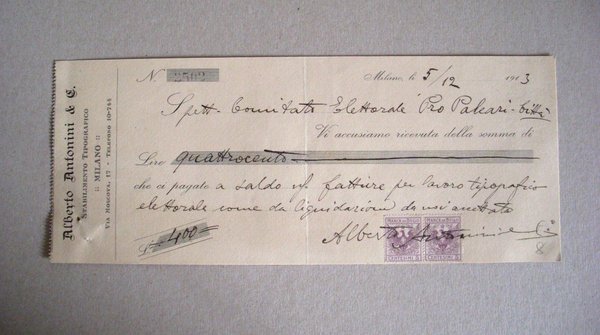 Alberto Antonini & C.
STABILIMENTO TIPOGRAFICO
MILANO
VIA MOSCOVA, 17 - TELEFONO 10-744
N 2502
Milano, li 5/12 1913
Spett. Comitato Elettorale "Pro Paleari" Città
Vi accusiamo ricevuta della somma di
Lire quattrocento
che ci pagate a saldo n/ fatture per lavoro tipografico
elettorale come da liquidazione da voi accettata
£ 400
Alberto Antonini & C.
CENTESIMI 5 CENTESIMI 5